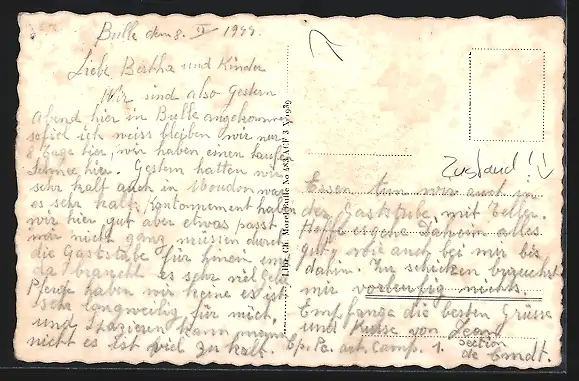 Bulle den 8. II 1944.
Liebe Bertha und Kinder
Wir sind also Gestern
abend hier in Bulle angekommen
sofiel ich weiss bleiben wir nur
8 Tage hier, wir haben einen haufen
Schnee hier. Gestern hatten wir
sehr kalt auch in Moudon war
es sehr kalt, Kantonement haben
wir hier gut aber etwas passt
mir nicht ganz müssen durch
die Gaststube für hinein und
da braucht es sehr viel Geld
Pferde haben wir keine es ist
sehr langweilig für mich,
und Spazieren kann man
nicht es ist viel zu kalt.
Libr. Ch. Morel, Bulle No 483 ACF 3 X 1939
Zustand !
Essen tun wir auch in
der Gaststube, mit Teller.
Hoffe es gehe Daheim alles
gut, wie auch bei mir bis
dahin. Zu schicken brauchst
mir vorläufig nichts.
Empfange die besten Grüsse
und Küsse von
Cp. Pc. art. Camp. 1. Section
de Cmdt.